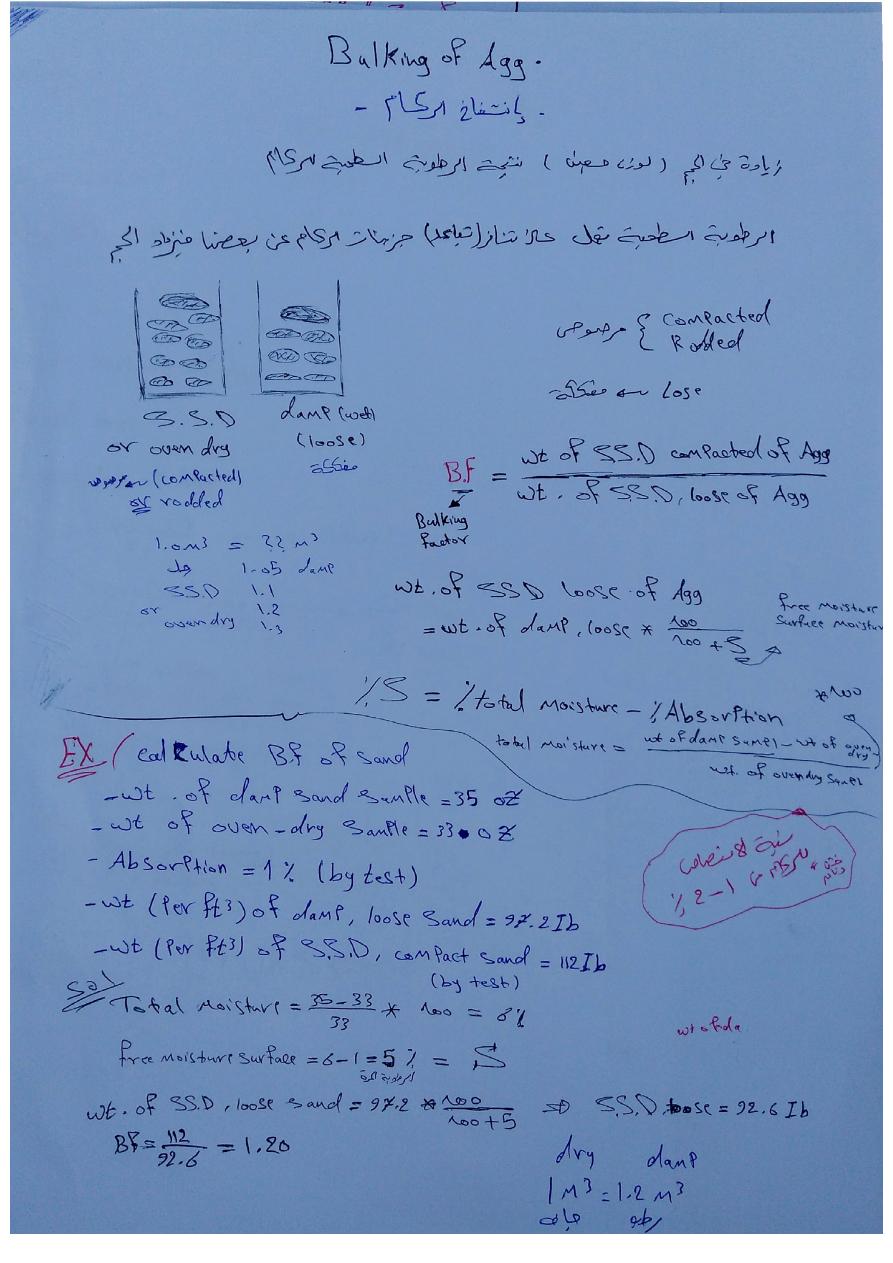 Bulking of Agg.
- إنتفاخ الركام .
زيادة في الحجم ( لوزن معين ) نتيجة الرطوبة السطحية للركام
الرطوبة السطحية تعمل على تنافر (تباعد) جزيئات الركام عن بعضها فيزداد الحجم
S.S.D
or oven dry
مرصوص (compacted)
or rodded
damp (wet)
(loose)
مفككة
مرصوص { Compacted
Rodded
مفككة ← Lose
B.F = wt of S.S.D compacted of Agg / wt. of S.S.D, loose of Agg
Bulking
factor
1.0 m3 = ?? m3
جاف 1.05 damp
S.S.D 1.1
or 1.2
oven dry 1.3
wt. of SSD loose of Agg
= wt. of damp, loose * 100 / 100 + S
free moisture
Surface moistur
% S = % total moisture - % Absorption
total moisture = wt of damp sampel - wt of oven-dry / wt. of oven dry sampel * 100
EX/ calculate B.f of sand
- wt. of damp sand sample = 35 oz
- wt of oven-dry sample = 33.0 oz
- Absorption = 1 % (by test)
- wt (per ft3) of damp, loose sand = 97.2 Ib
- wt (per ft3) of S.S.D, compact sand = 112 Ib
(by test)
نسبة الامتصاص
للركام من
1-2 %
Sol
Total moisture = 35-33 / 33 * 100 = 6%
wt of da
free moisture surface = 6-1 = 5 % = S
الرطوبة الحرة
wt. of S.S.D, loose sand = 97.2 * 100 / 100+5 ⇒ S.S.D, loose = 92.6 Ib
Bf = 112 / 92.6 = 1.20
dry damp
1 m3 = 1.2 m3
جاف رطب